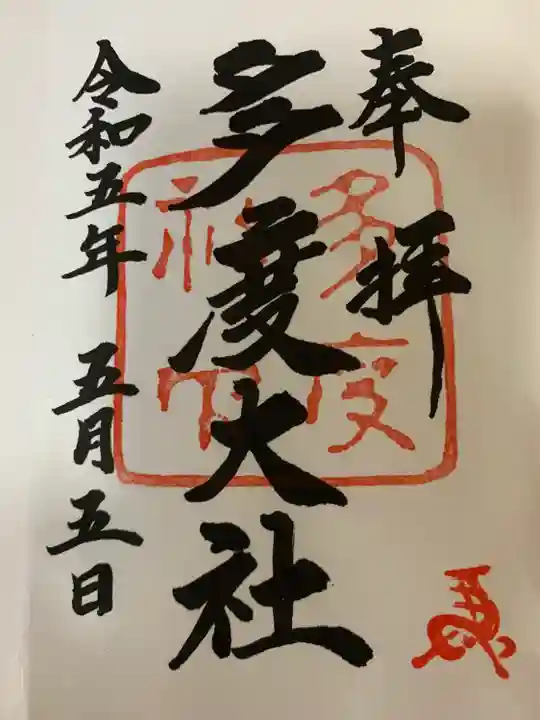 奉拝
多度大社
令和五年 五月五日
多度
神